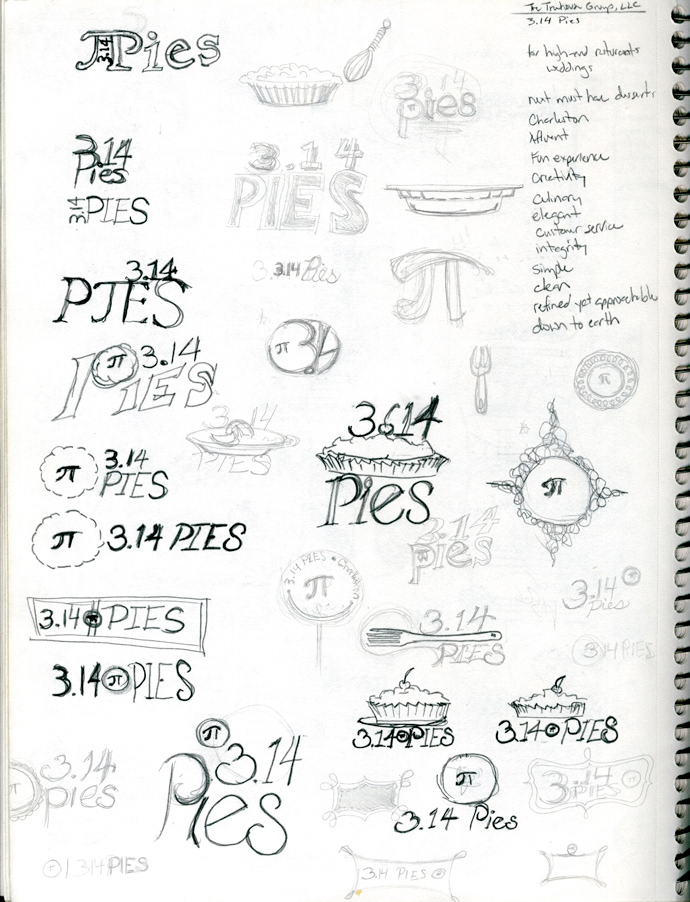 3.14 Pies
for high-end resturants
weddings
must have desserts
Charleston
Affluent
Fun experience
Creativity
Culinary
elegant
customer service
integrity
simple
clean
refined yet approachable
down to earth
π
3.14
Pies
3.14
pies
3.14
Pies
3.14
PIES
3.14
PIES
3.14
PIES
3.14 Pies
π
π 3.14
PIES
π
π
3.14
PIES
3.14
Pies
π
3.14
PIES
π
π 3.14 PIES
3.14
pies
3.14 PIES • Charleston
π
3.14
Pies
3.14 PIES
3.14
PIES
3.14 PIES
3.14 π PIES
3.14 PIES
3.14 PIES
π
3.14
Pies
3.14
pies
π
3.14 Pies
3.14
PIES
3.14 PIES
3.14 PIES